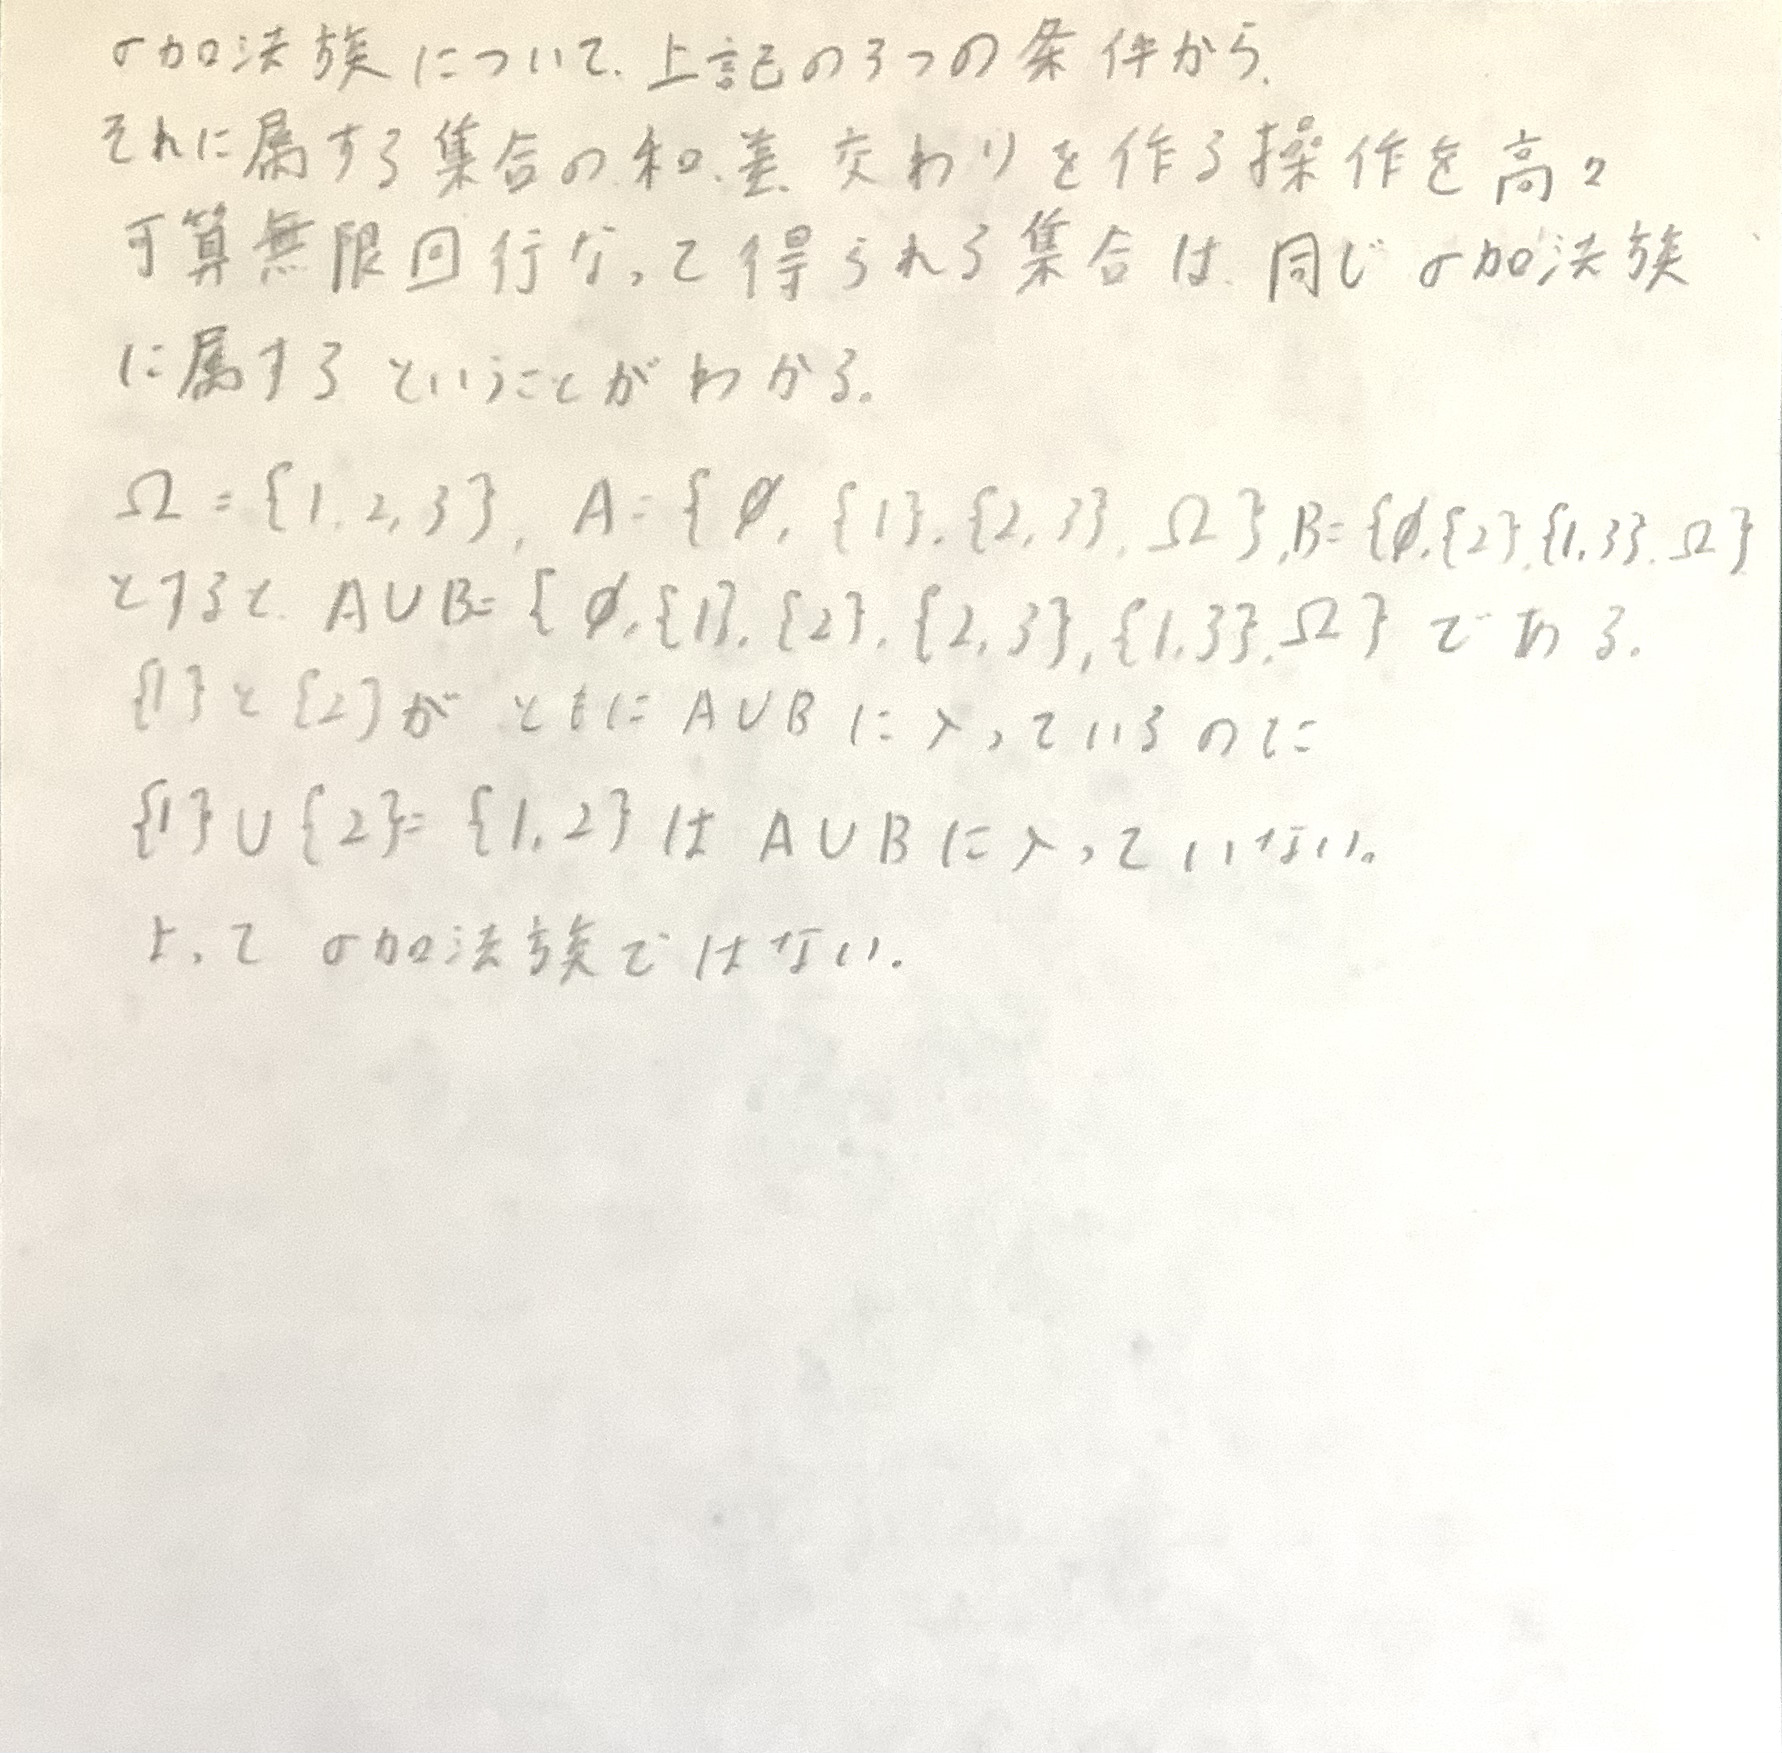 σ加法族について、上記の3つの条件から、
それに属する集合の和、差、交わりを作る操作を高々
可算無限回行なって得られる集合は、同じσ加法族
に属するということがわかる。
Ω = {1, 2, 3}, A = {∅, {1}, {2, 3}, Ω}, B = {∅, {2}, {1, 3}, Ω}
とすると、A∪B = {∅, {1}, {2}, {2, 3}, {1, 3}, Ω} である。
{1}と{2}がともにA∪Bに入っているのに
{1}∪{2} = {1, 2}はA∪Bに入っていない。
よってσ加法族ではない。